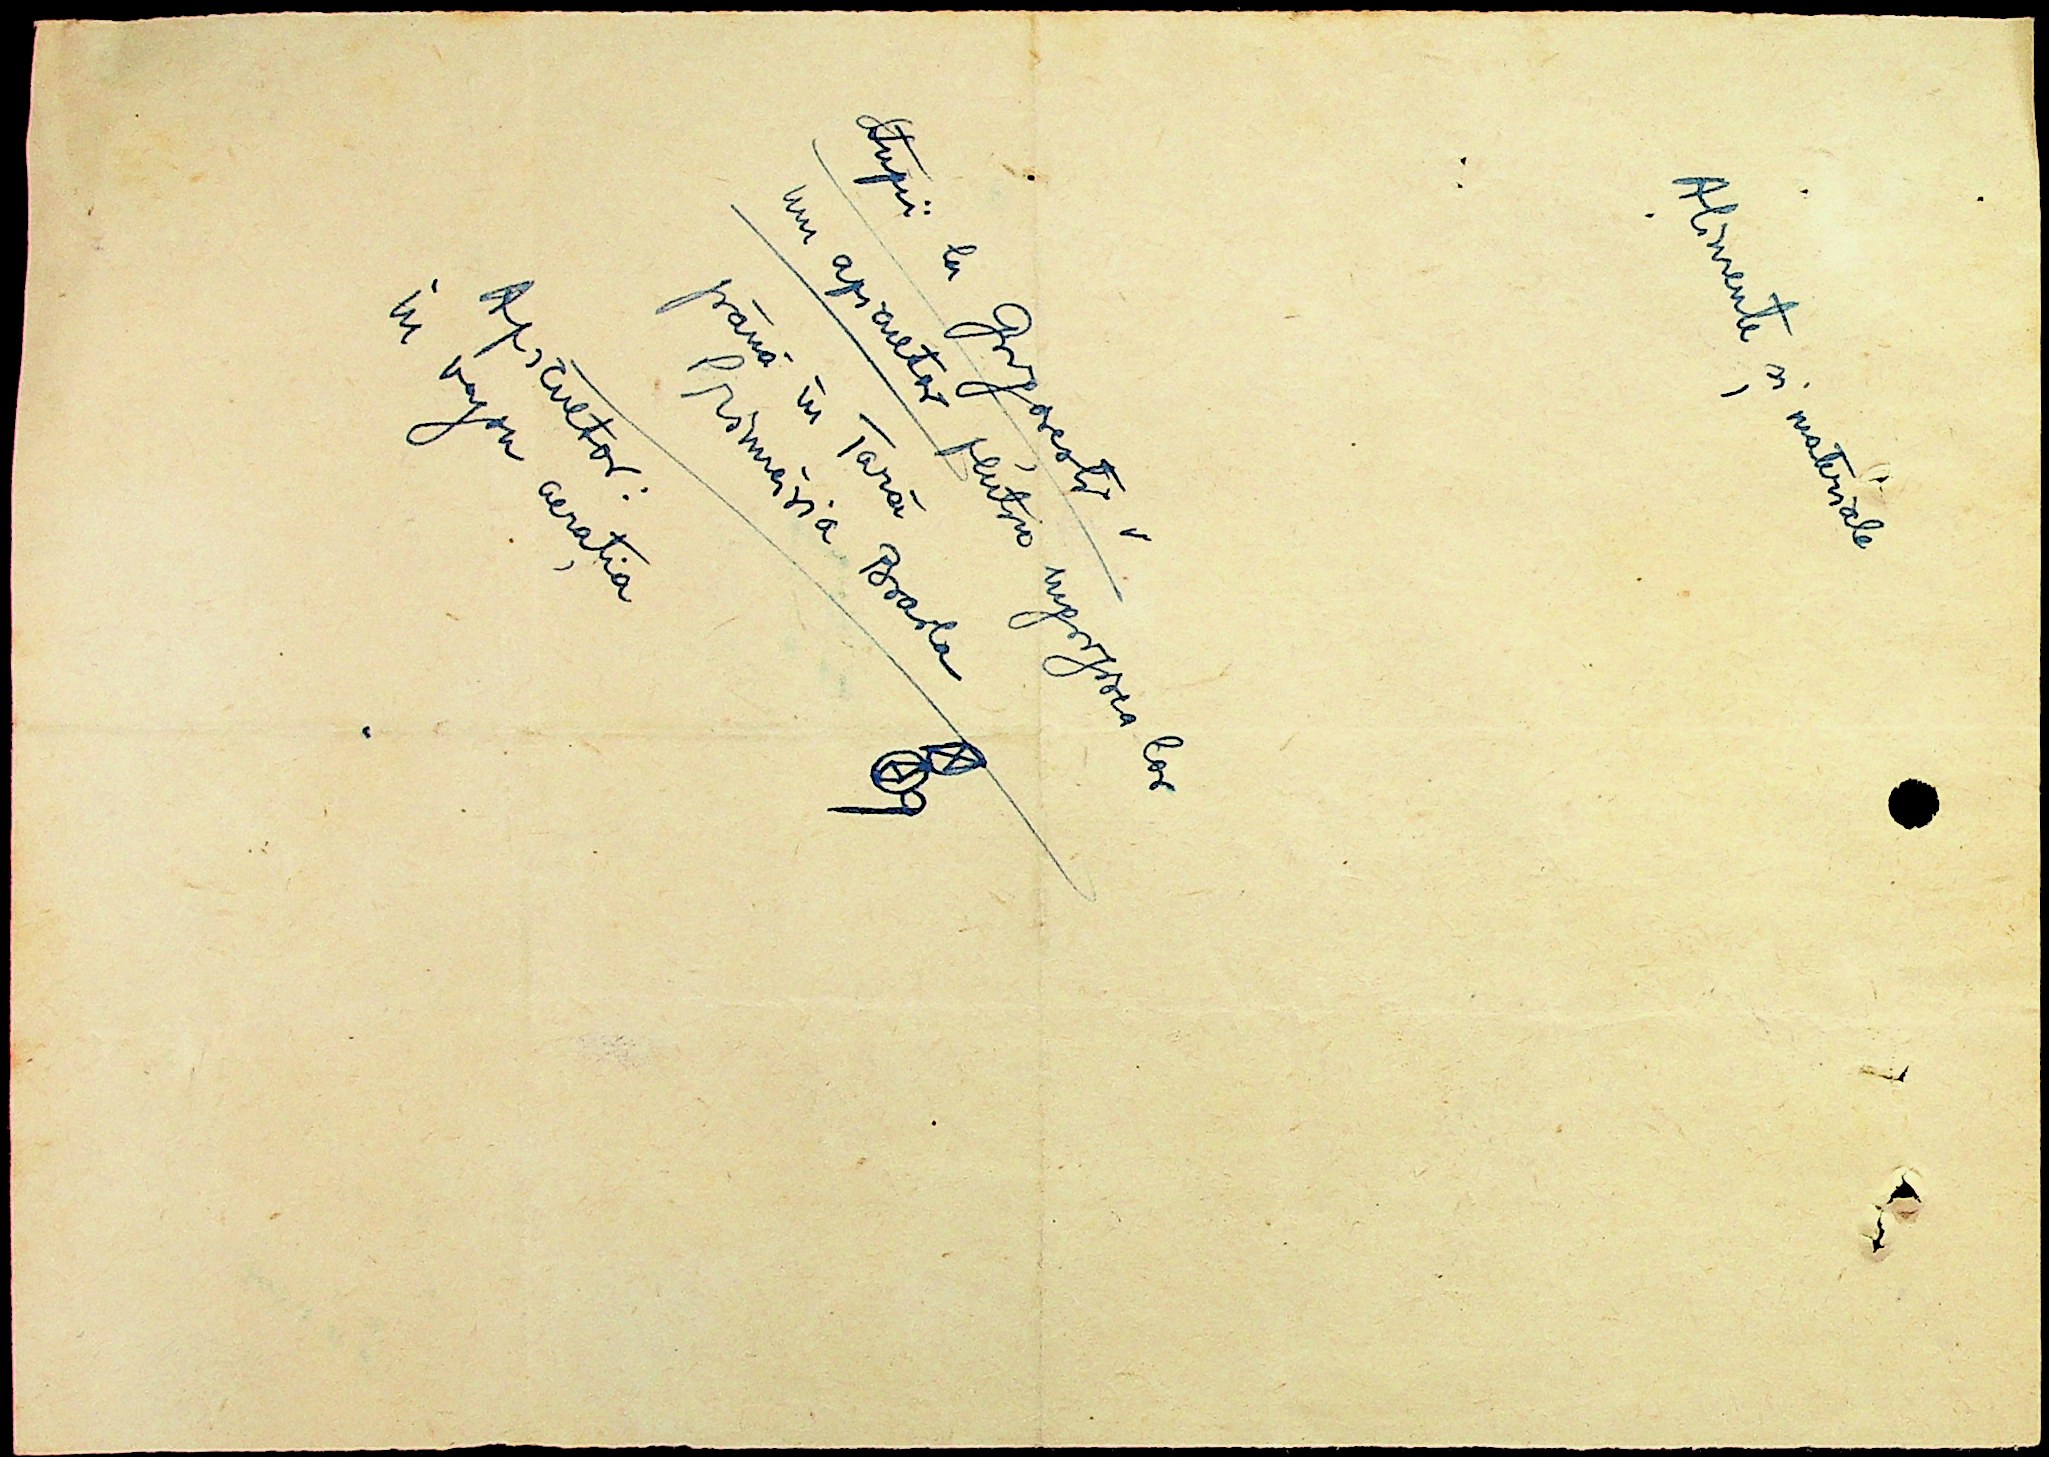 Alimente și materiale
Stupi: la Grigorești
un apicultor pentru ingrijirea lor
până în Țară
Primăria Braila
Apicultor:
în vagon aerația